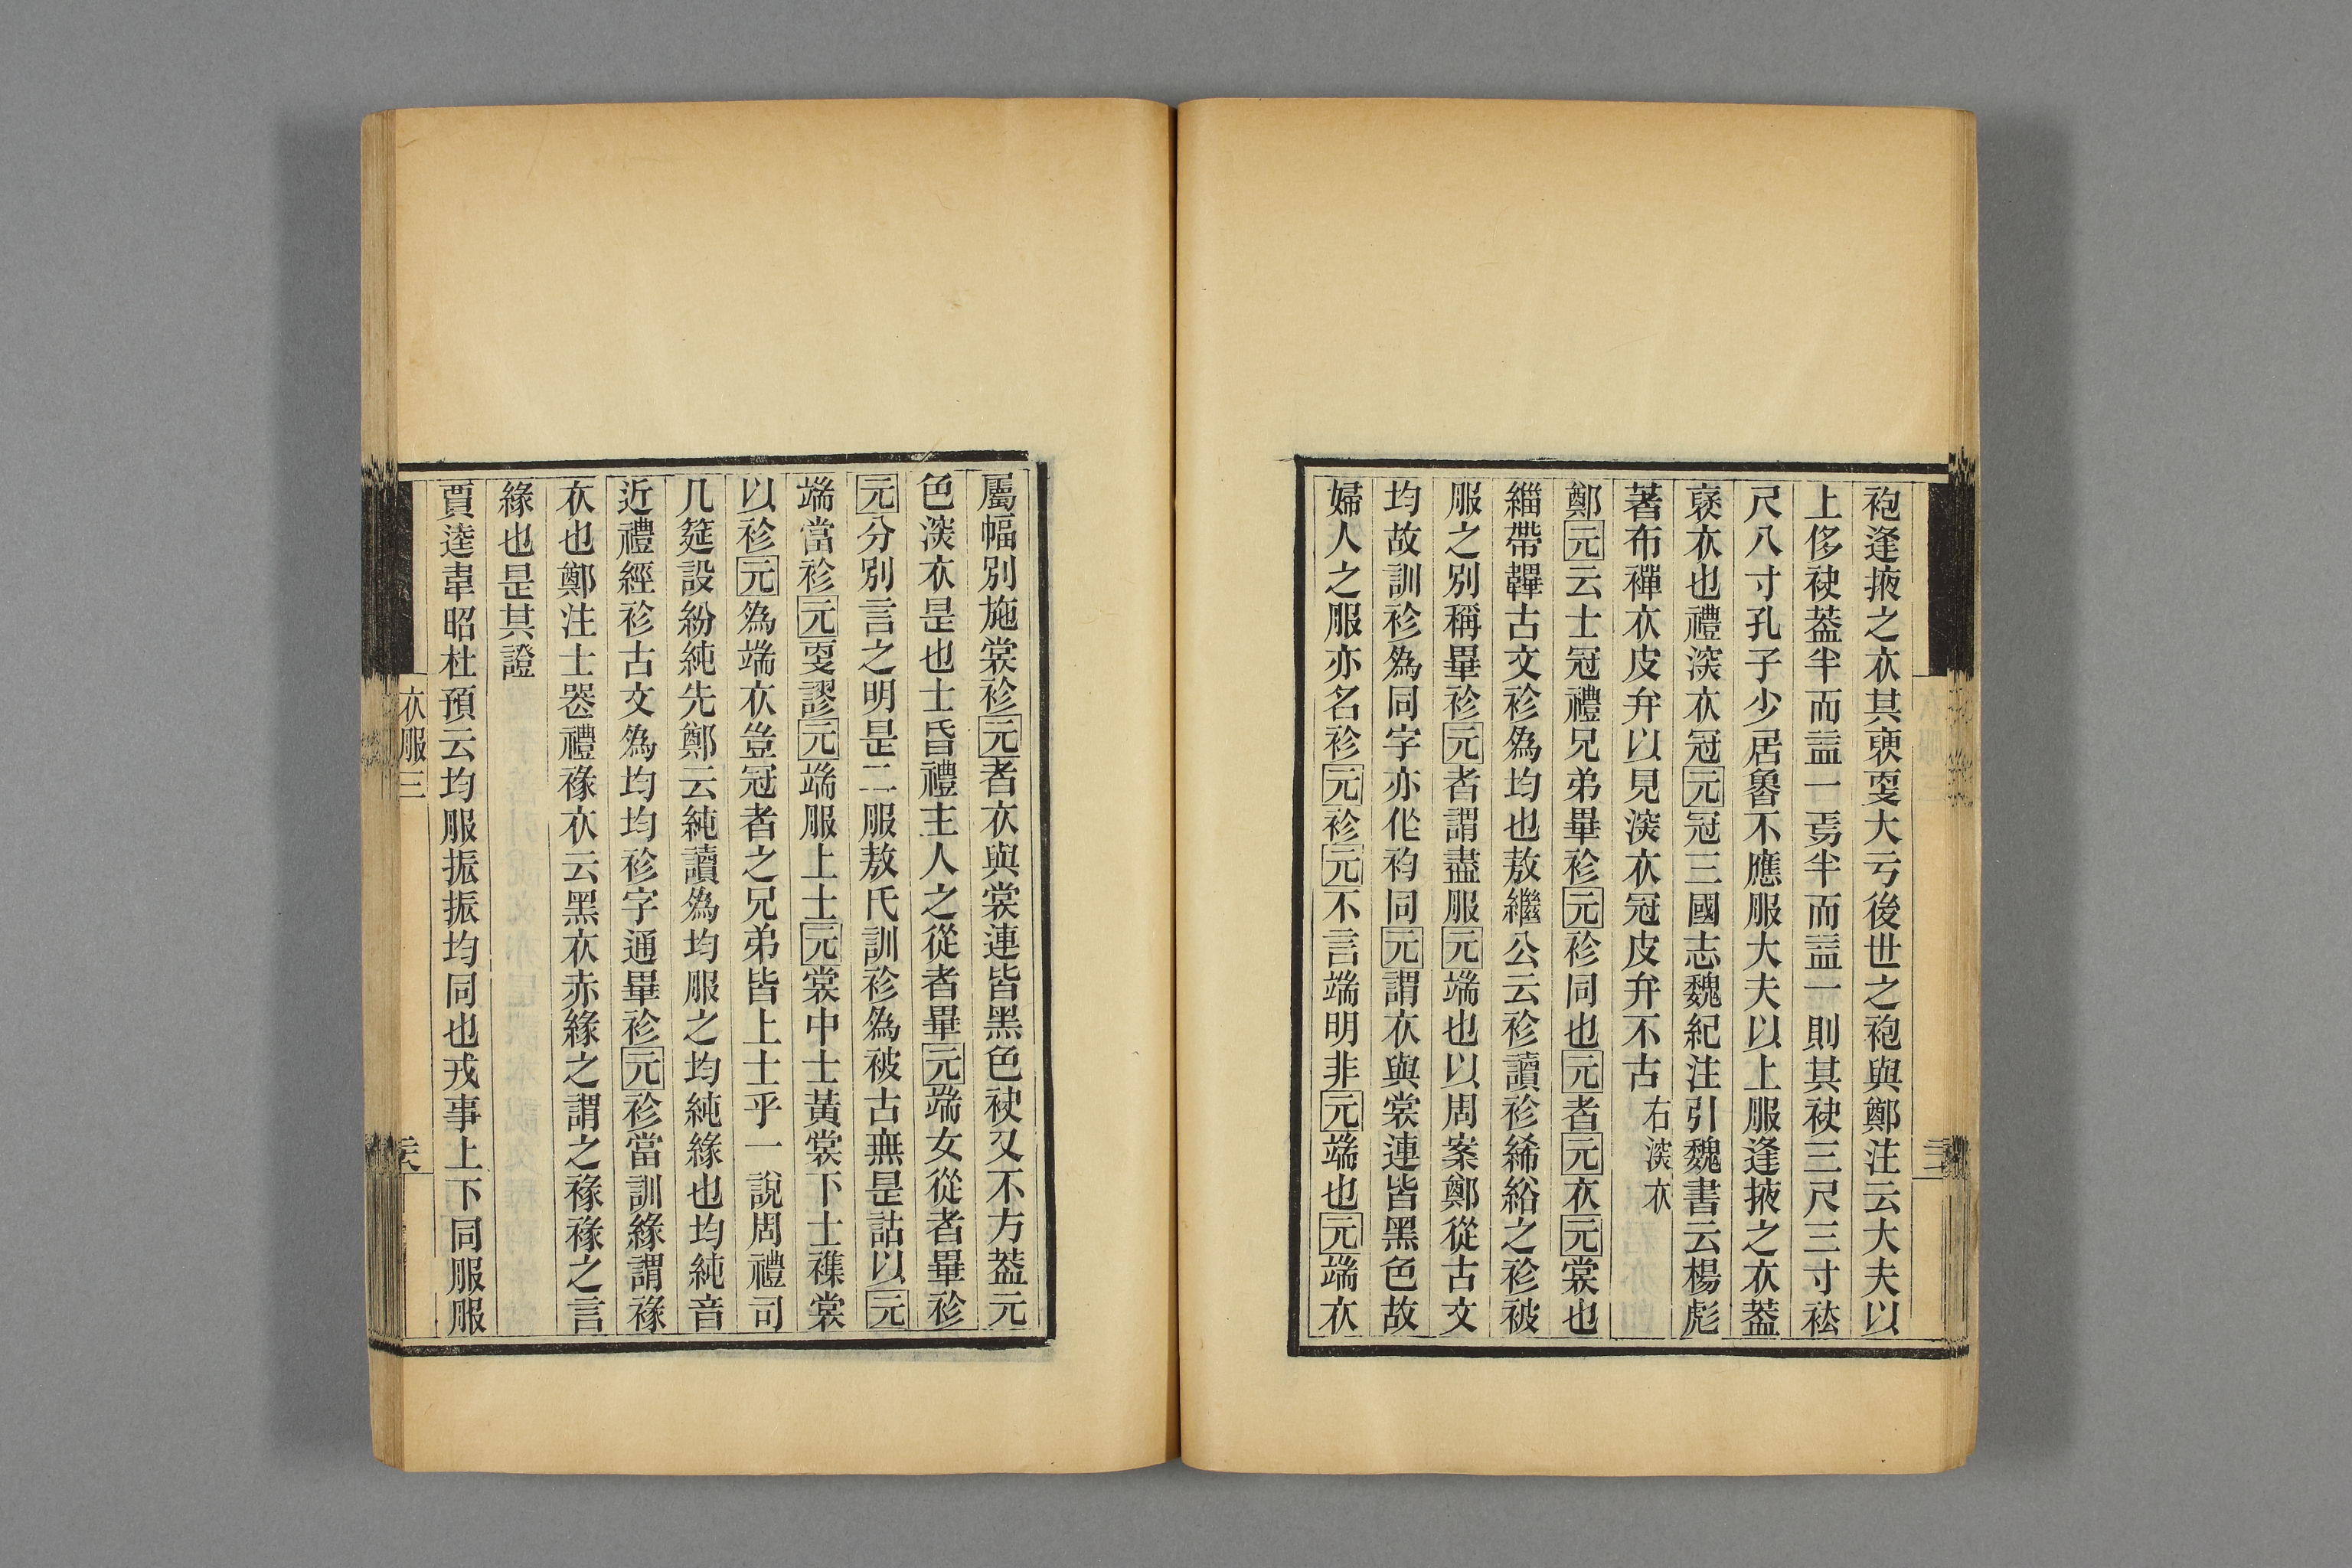 袍逢掖之衣其褎更大亏後世之袍與鄭注云大夫以
上侈袂葢半而益一焉半而益一則其袂三尺三寸袪
尺八寸孔子少居魯不應服大夫以上服逢掖之衣葢
褎衣也禮深衣冠元冠三國志魏紀注引魏書云楊彪
著布襌衣皮弁以見深衣冠皮弁不古右深衣
鄭元云士冠禮兄弟畢袗元袗同也元者元衣元裳也
緇帶韠古文袗爲均也敖繼公云袗讀袗絺綌之袗被
服之別稱畢袗元者謂盡服元端也以周案鄭從古文
均故訓袗爲同字亦作袀同元謂衣與裳連皆黑色故
婦人之服亦名袗元袗元不言端明非元端也元端衣
屬幅別施裳袗元者衣與裳連皆黑色袂又不方葢元
色深衣是也士昏禮主人之從者畢元端女從者畢袗
元分別言之明是二服敖氏訓袗爲被古無是詁以元
端當袗元更謬元端服上士元裳中士黃裳下士襍裳
以袗元爲端衣豈冠者之兄弟皆上士乎一說周禮司
几筵設紛純先鄭云純讀爲均服之均純緣也均純音
近禮經袗古文爲均均袗字通畢袗元袗當訓緣謂褖
衣也鄭注士喪禮褖衣云黑衣赤緣之謂之褖褖之言
緣也是其證
賈逵韋昭杜預云均服振振均同也戎事上下同服服
衣服三